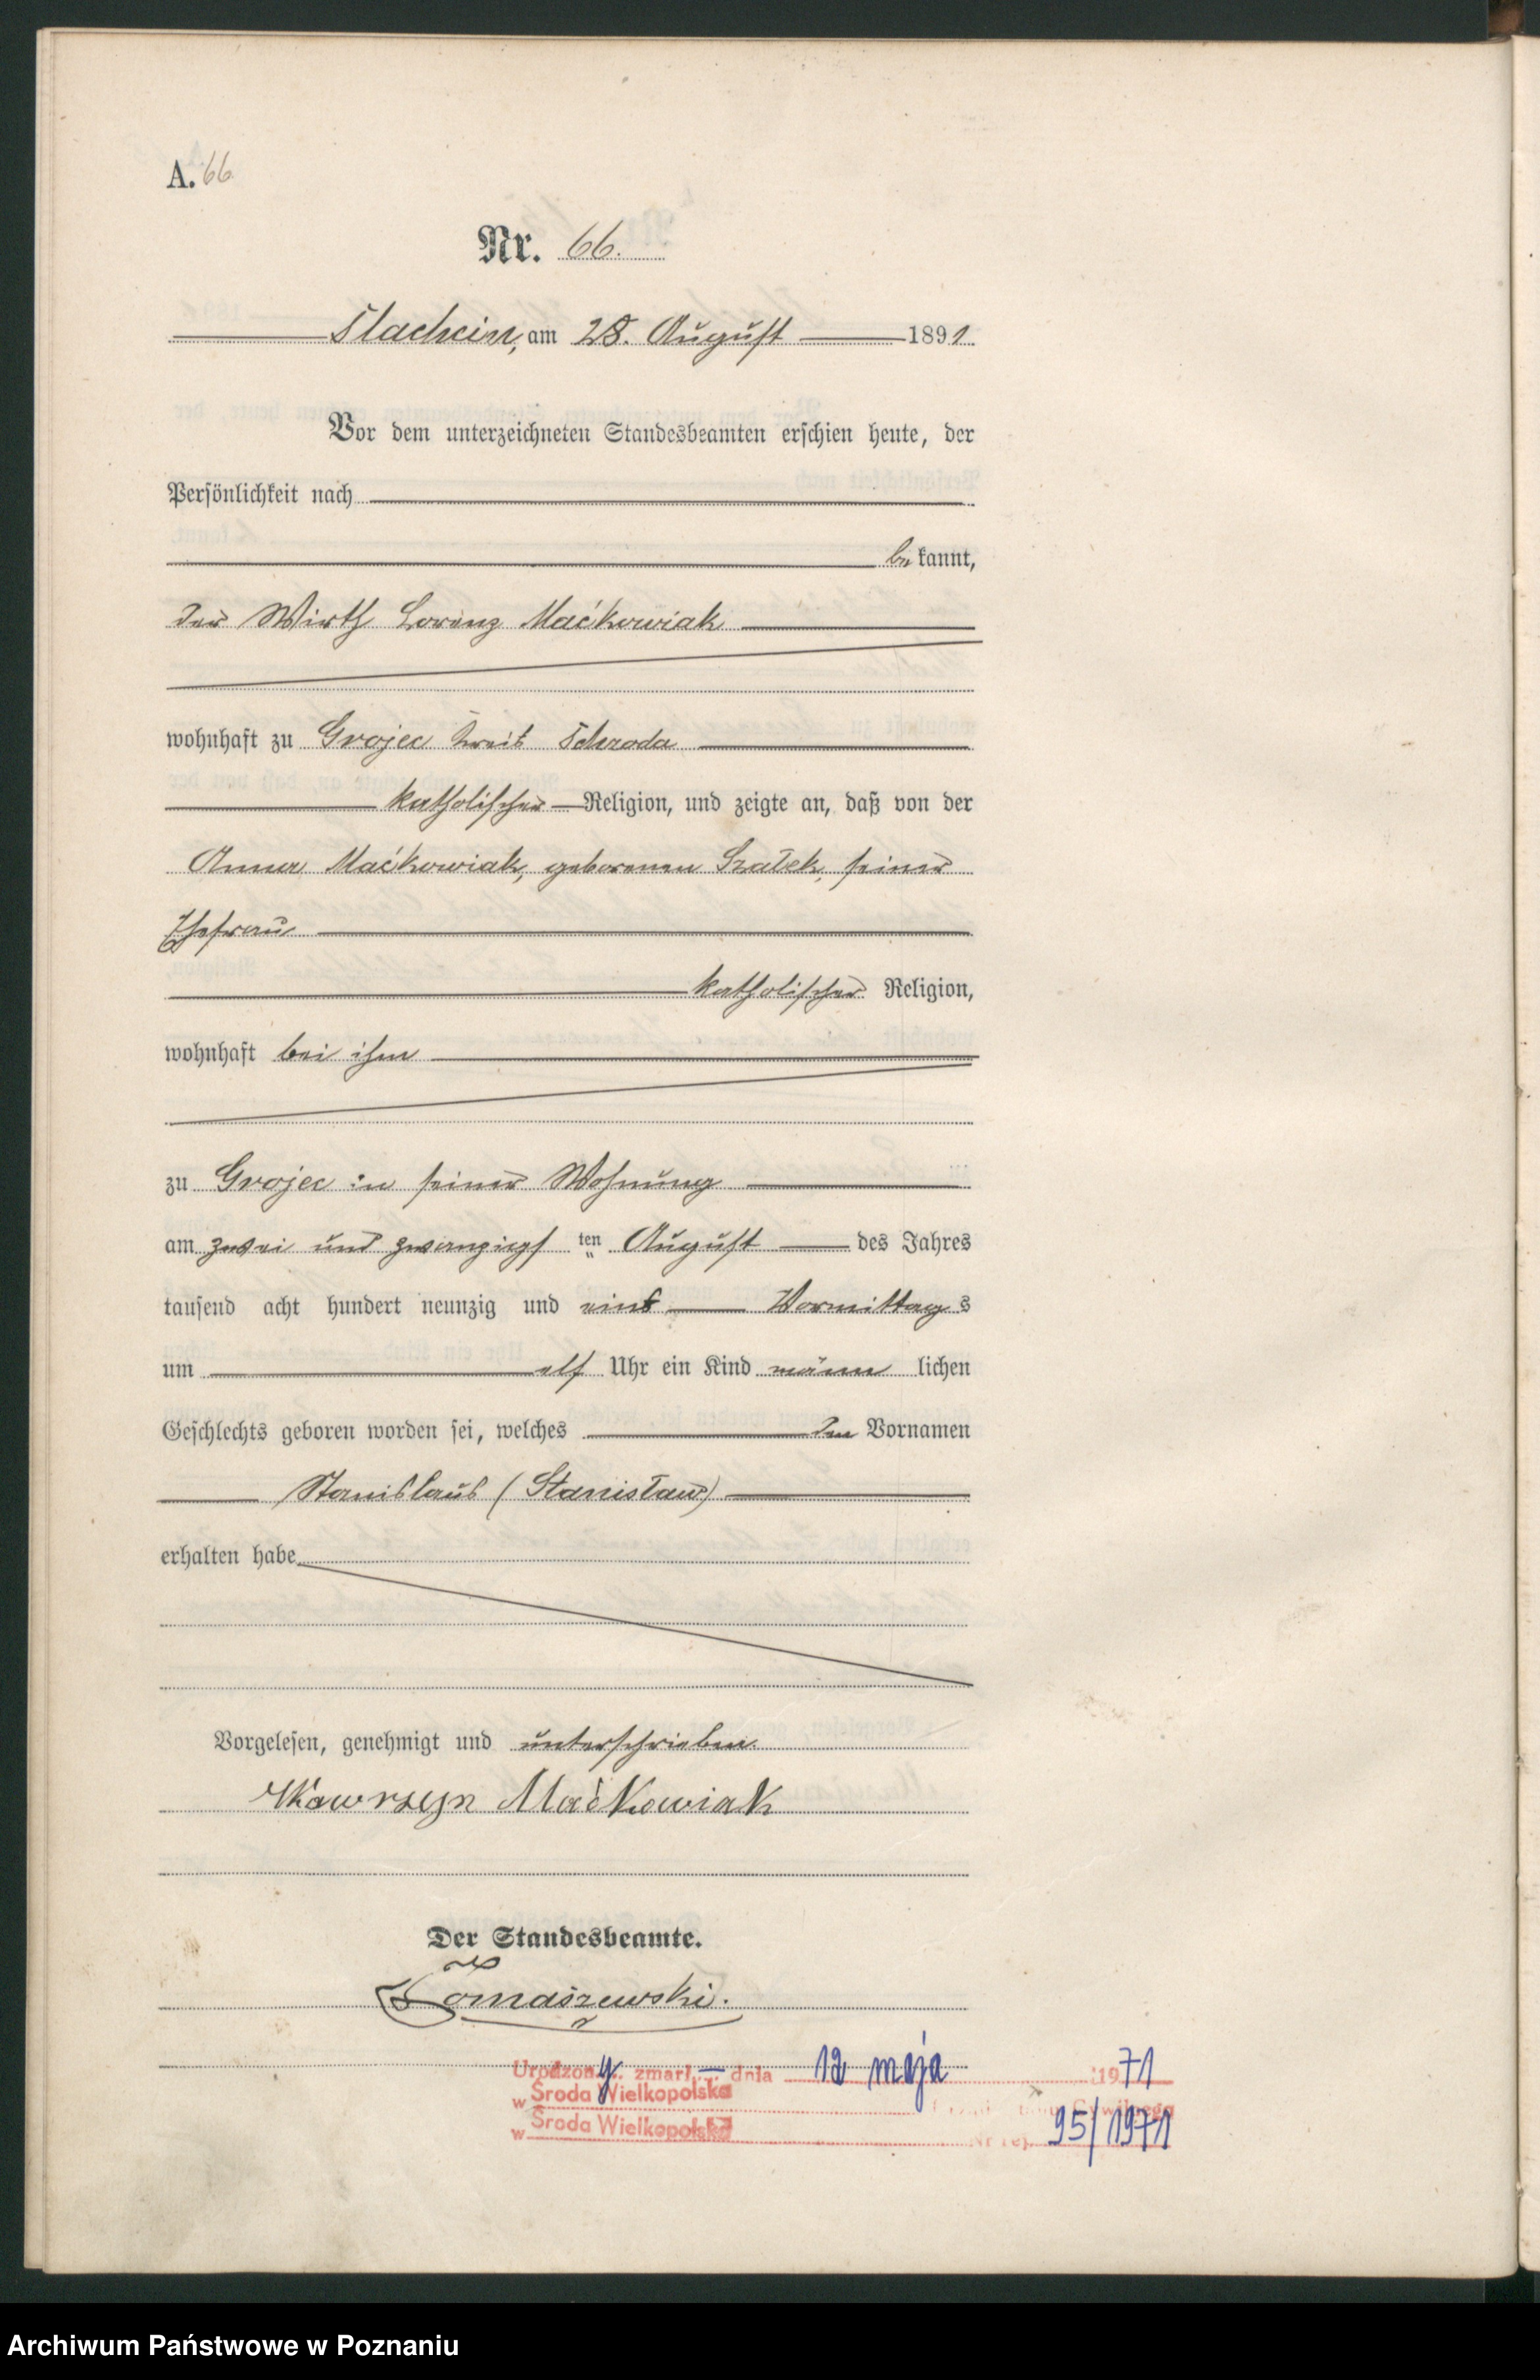 A. 66
Nr. 66.
Slachcin, am 28. August 1891.
Vor dem unterzeichneten Standesbeamten erschien heute, der
Persönlichkeit nach
bekannt,
der Wirth Lorenz Maćkowiak
wohnhaft zu Grojec Kreis Schroda
katholischer Religion, und zeigte an, daß von der
Anna Maćkowiak, geborenen Szałek, seiner
Ehefrau
katholischer Religion,
wohnhaft bei ihm
zu Grojec in seiner Wohnung
am zwei und zwanzigsten August des Jahres
tausend acht hundert neunzig und eins Vormittags
um elf Uhr ein Kind männlichen
Geschlechts geboren worden sei, welches den Vornamen
Stanislaus (Stanisław)
erhalten habe
Vorgelesen, genehmigt und unterschrieben.
Wawrzyn Maćkowiak
Der Standesbeamte.
Tomaszewski.
Urodzony zmarł – dnia 12 maja 1971
w Środa Wielkopolska
w Środa Wielkopolska Nr rej. 95/1971
Archiwum Państwowe w Poznaniu